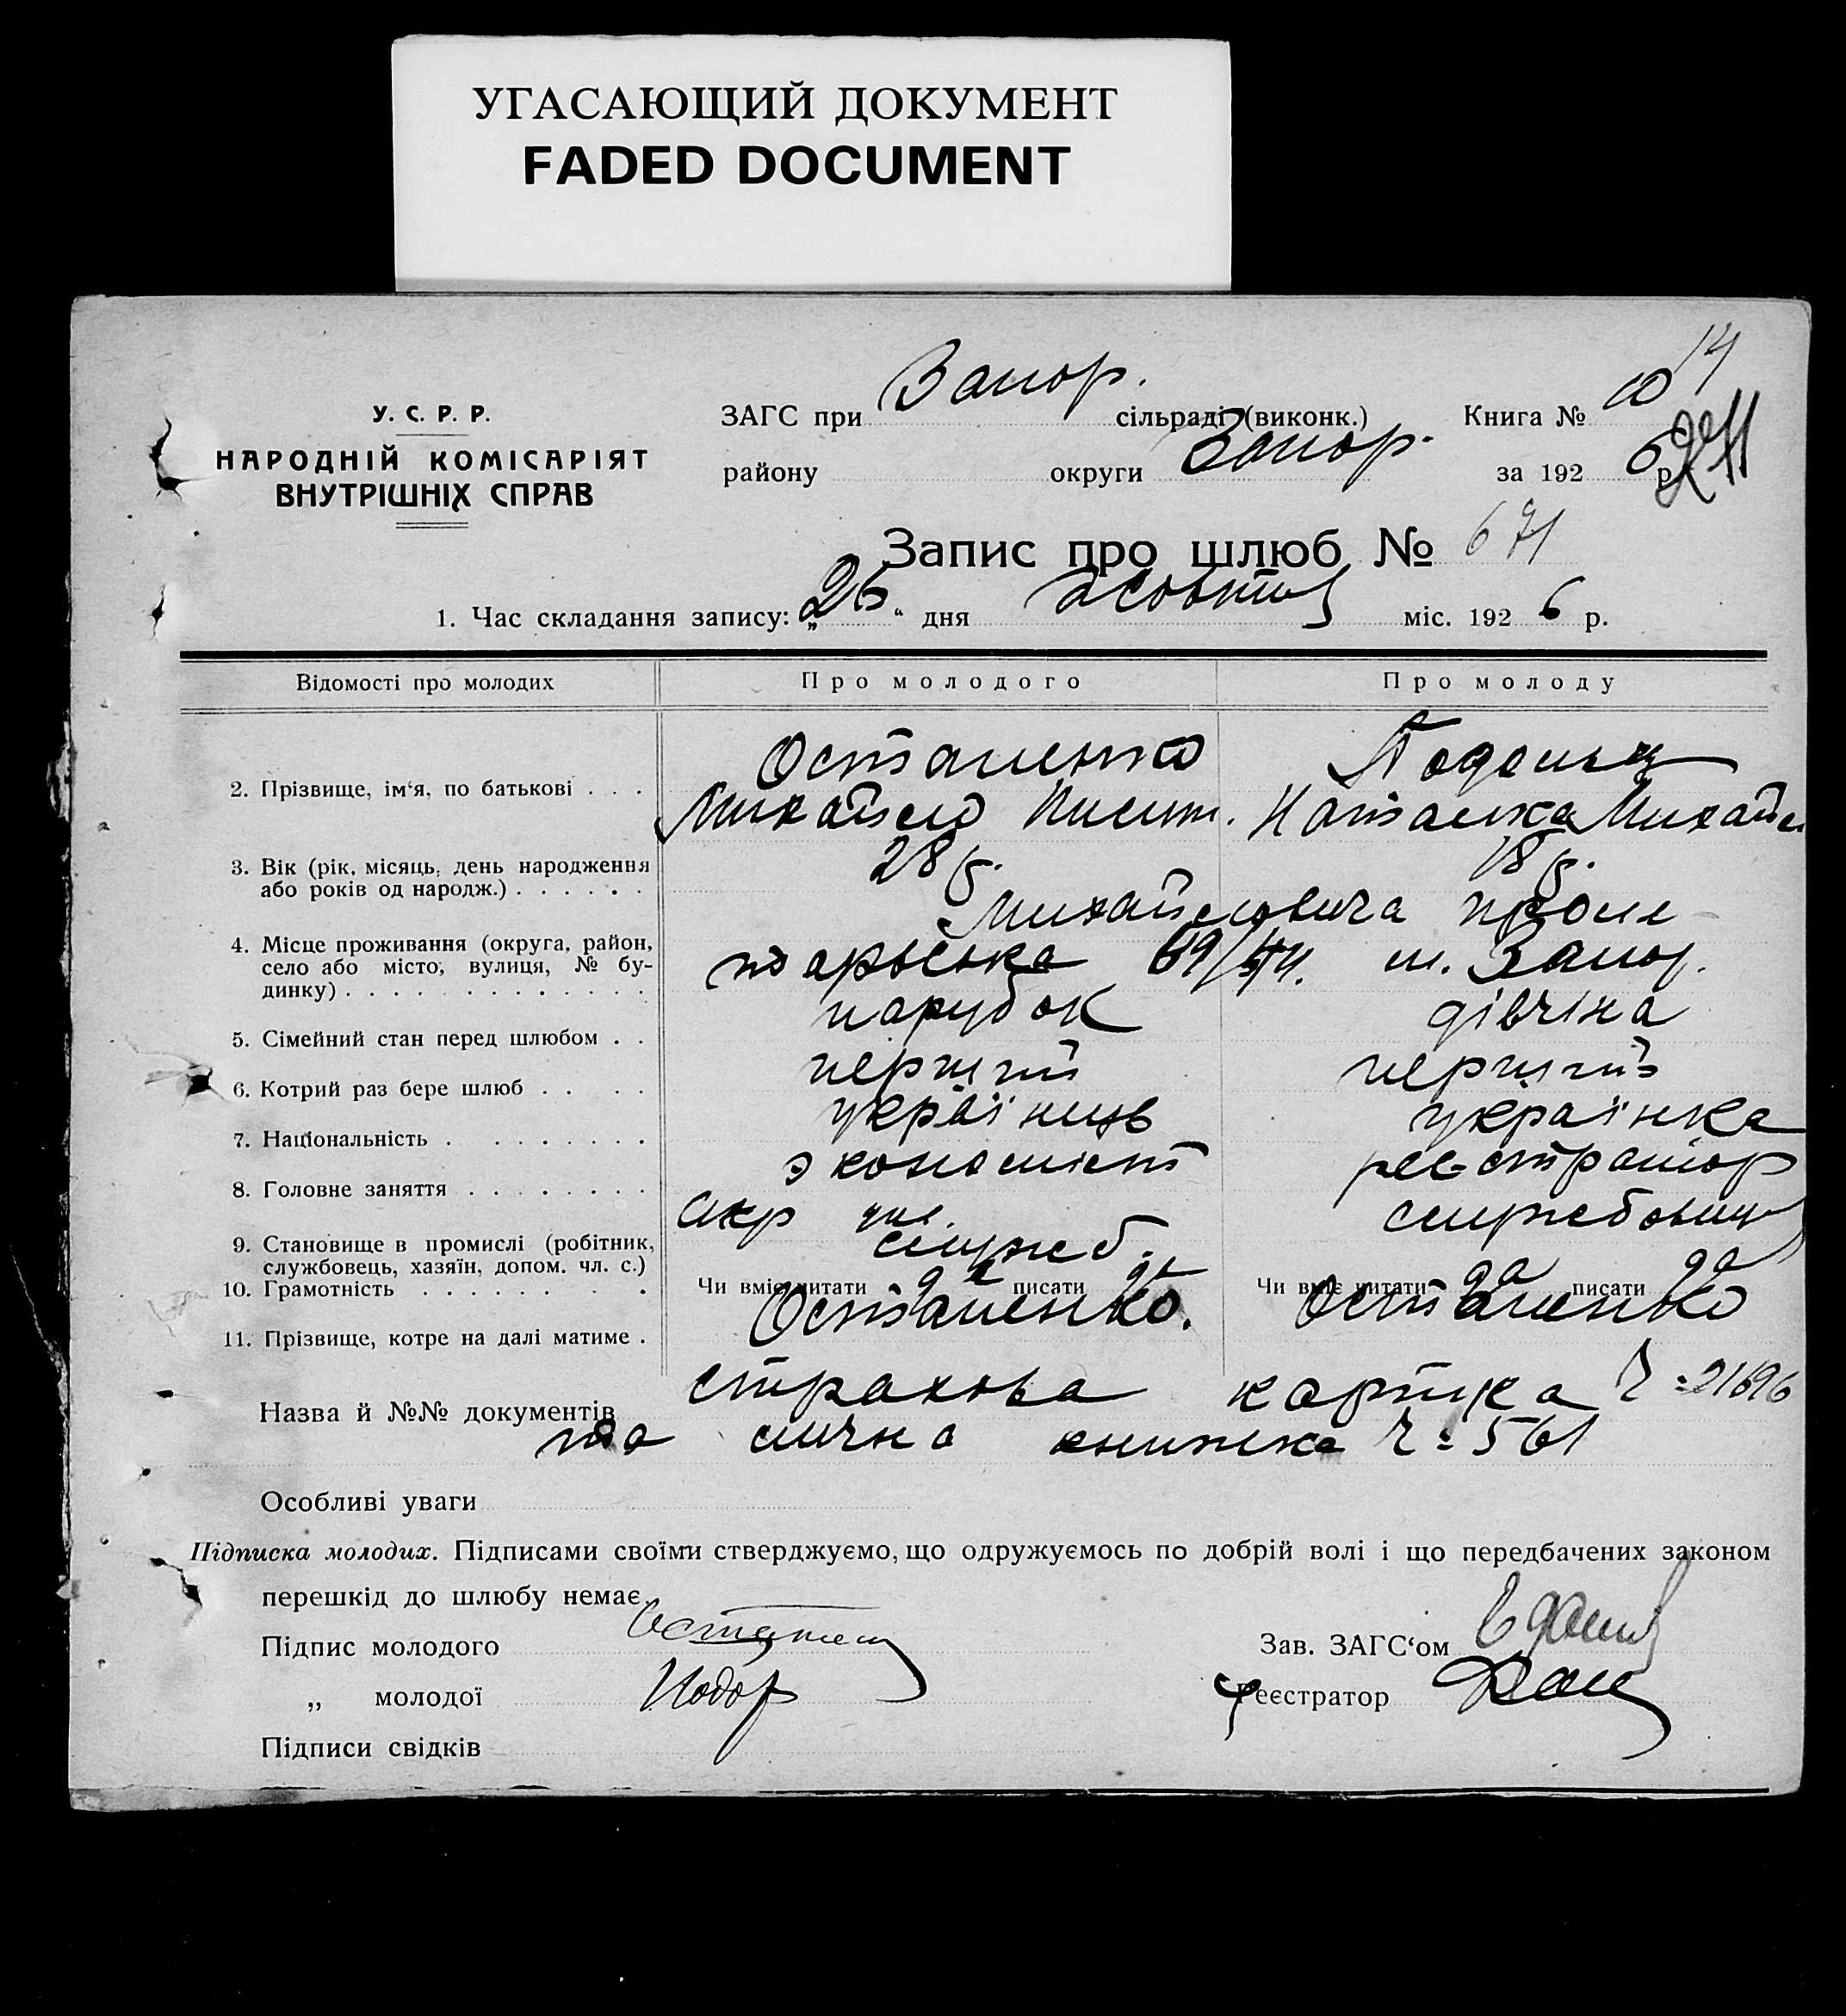 УГАСАЮЩИЙ ДОКУМЕНТ
FADED DOCUMENT
14
У. С. Р. Р.
НАРОДНІЙ КОМІСАРІЯТ
ВНУТРІШНІХ СПРАВ
ЗАГС при Запор. сільраді (виконк.) Книга № 10
району округи Запор. за 192 6 р.
Запис про шлюб № 671
1. Час складання запису: „26“ дня жовтня міс. 192 6 р.
Відомості про молодих Про молодого Про молоду
2. Прізвище, ім‘я, по батькові . . . Остапенко
Михайло Наталка Михайл
3. Вік (рік, місяць, день народження або років од народж.) . . . . . . 28 р. 18 р.
4. Місце проживання (округа, район, село або місто, вулиця, № будинку) . . . . . . . . . . . . .
Михайловича проле-
тарьська м. Запор.
5. Сімейний стан перед шлюбом . . парубок дівчіна
6. Котрий раз бере шлюб . . . . перший перший
7. Національність . . . . . . . . . українць українка
8. Головне заняття . . . . . . . . економіст реєстратор
9. Становище в промислі (робітник, службовець, хазяїн, допом. чл. с.) служб. службовиця
10. Грамотність . . . . . . . . Чи вміє читати да писати да Чи вміє читати да писати да
11. Прізвище, котре на далі матиме . Остапенко. Остапенко
Назва й №№ документів страхова картка Ч = 21696
та лична книжка Ч = 561
Особливі уваги
Підписка молодих. Підписами своїми стверджуємо, що одружуємось по добрій волі і що передбачених законом
перешкід до шлюбу немає.
Підпис молодого Зав. ЗАГС‘ом
„ молодої Реєстратор
Підписи свідків